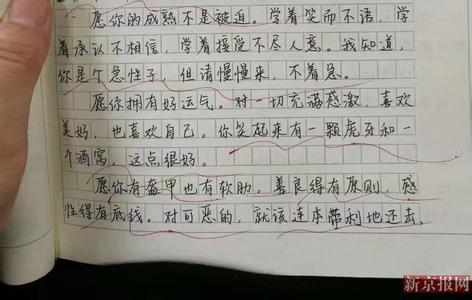 愿你的成熟不是被迫。学着笑而不语，学
着承认不相信，学着接受不尽人意。我知道，
你是个急性子，但请慢慢来，不着急。
愿你拥有好运气。对一切充满感激，喜欢
美好，也喜欢自己。你笑起来有一颗虎牙和一
个酒窝，这点很好。
愿你有盔甲也有软肋。善良得有原则，感
性得有底线。对可恶的，就该连本带利地还击。
新京报网